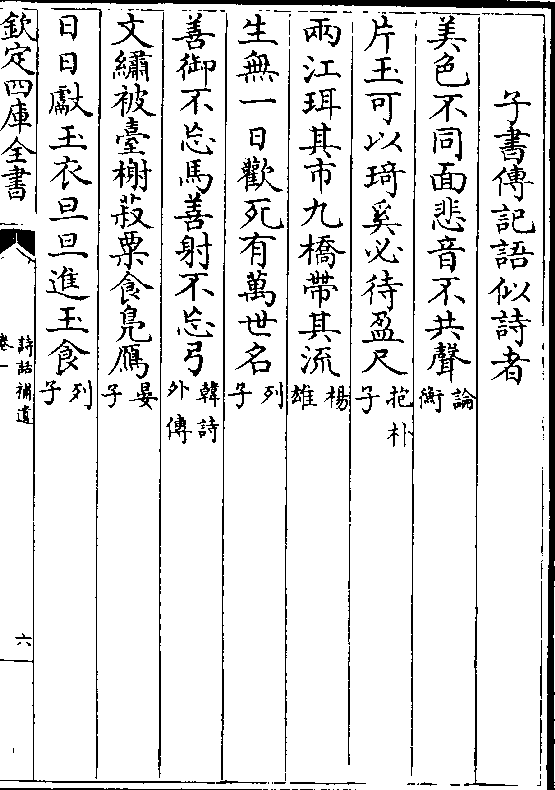 子書傳記語似詩者
美色不同面悲音不共聲論衡
片玉可以琦奚必待盈尺抱朴子
兩江珥其市九橋帶其流楊雄
生無一日歡死有萬世名列子
善御不忘馬善射不忘弓韓詩外傳
文繡被臺榭菽粟食鳧鴈晏子
日日獻玉衣旦旦進玉食列子
欽定四庫全書
詩話補遺
卷一
六